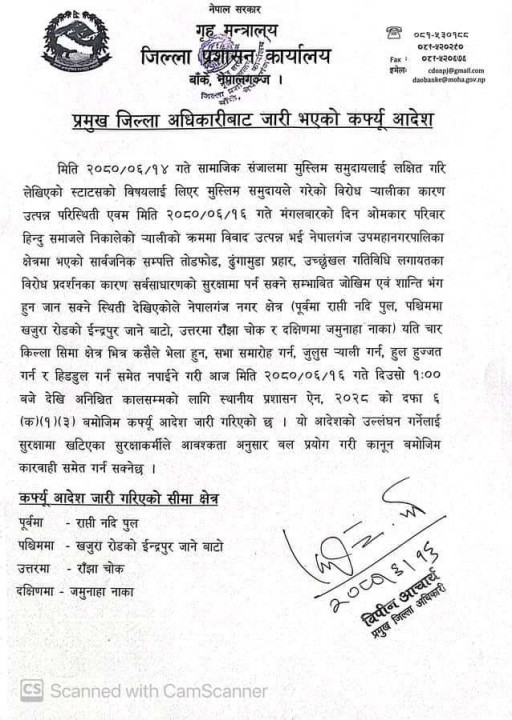 नेपाल सरकार
गृह मन्त्रालय
जिल्ला प्रशासन कार्यालय
बाँके, नेपालगञ्ज ।
०८१-५३०१८८
०८१-५२०२१०
Fax : ०८१-५२०६७६
इमेलः cdonpj@gmail.com
daobanke@moha.gov.np
प्रमुख जिल्ला अधिकारीबाट जारी भएको कर्फ्यू आदेश
मिति २०८०/०६/१४ गते सामाजिक संजालमा मुस्लिम समुदायलाई लक्षित गरि
लेखिएको स्टाटसको विषयलाई लिएर मुस्लिम समुदायले गरेको विरोध र्‍यालीका कारण
उत्पन्न परिस्थिती एवम मिति २०८०/०६/१६ गते मंगलबारको दिन ओमकार परिवार
हिन्दु समाजले निकालेको र्‍यालीको क्रममा विवाद उत्पन्न भई नेपालगंज उपमहानगरपालिका
क्षेत्रमा भएको सार्वजनिक सम्पत्ति तोडफोड, ढुंगामुडा प्रहार, उच्छृंखल गतिविधि लगायतका
विरोध प्रदर्शनका कारण सर्वसाधारणको सुरक्षामा पर्न सक्ने सम्भावित जोखिम एवं शान्ति भंग
हुन जान सक्ने स्थिती देखिएकोले नेपालगंज नगर क्षेत्र (पूर्वमा राप्ती नदि पुल, पश्चिममा
खजुरा रोडको ईन्द्रपुर जाने बाटो, उत्तरमा राँझा चोक र दक्षिणमा जमुनाहा नाका) यति चार
किल्ला सिमा क्षेत्र भित्र कसैले भेला हुन, सभा समारोह गर्न, जुलुस र्‍याली गर्न, हुल हुज्जत
गर्न र हिडडुल गर्न समेत नपाईने गरी आज मिति २०८०/०६/१६ गते दिउसो १:००
बजे देखि अनिश्चित कालसम्मको लागि स्थानीय प्रशासन ऐन, २०२८ को दफा ६
(क)(१)(३) बमोजिम कर्फ्यू आदेश जारी गरिएको छ । यो आदेशको उल्लंघन गर्नेलाई
सुरक्षामा खटिएका सुरक्षाकर्मीले आवश्कता अनुसार बल प्रयोग गरी कानून बमोजिम
कारवाही समेत गर्न सक्नेछ ।
कर्फ्यू आदेश जारी गरिएको सीमा क्षेत्र
पूर्वमा - राप्ती नदि पुल
पश्चिममा - खजुरा रोडको ईन्द्रपुर जाने बाटो
उत्तरमा - राँझा चोक
दक्षिणमा - जमुनाहा नाका
२०८०।६।१६
विपीन आचार्य
प्रमुख जिल्ला अधिकारी
CS Scanned with CamScanner